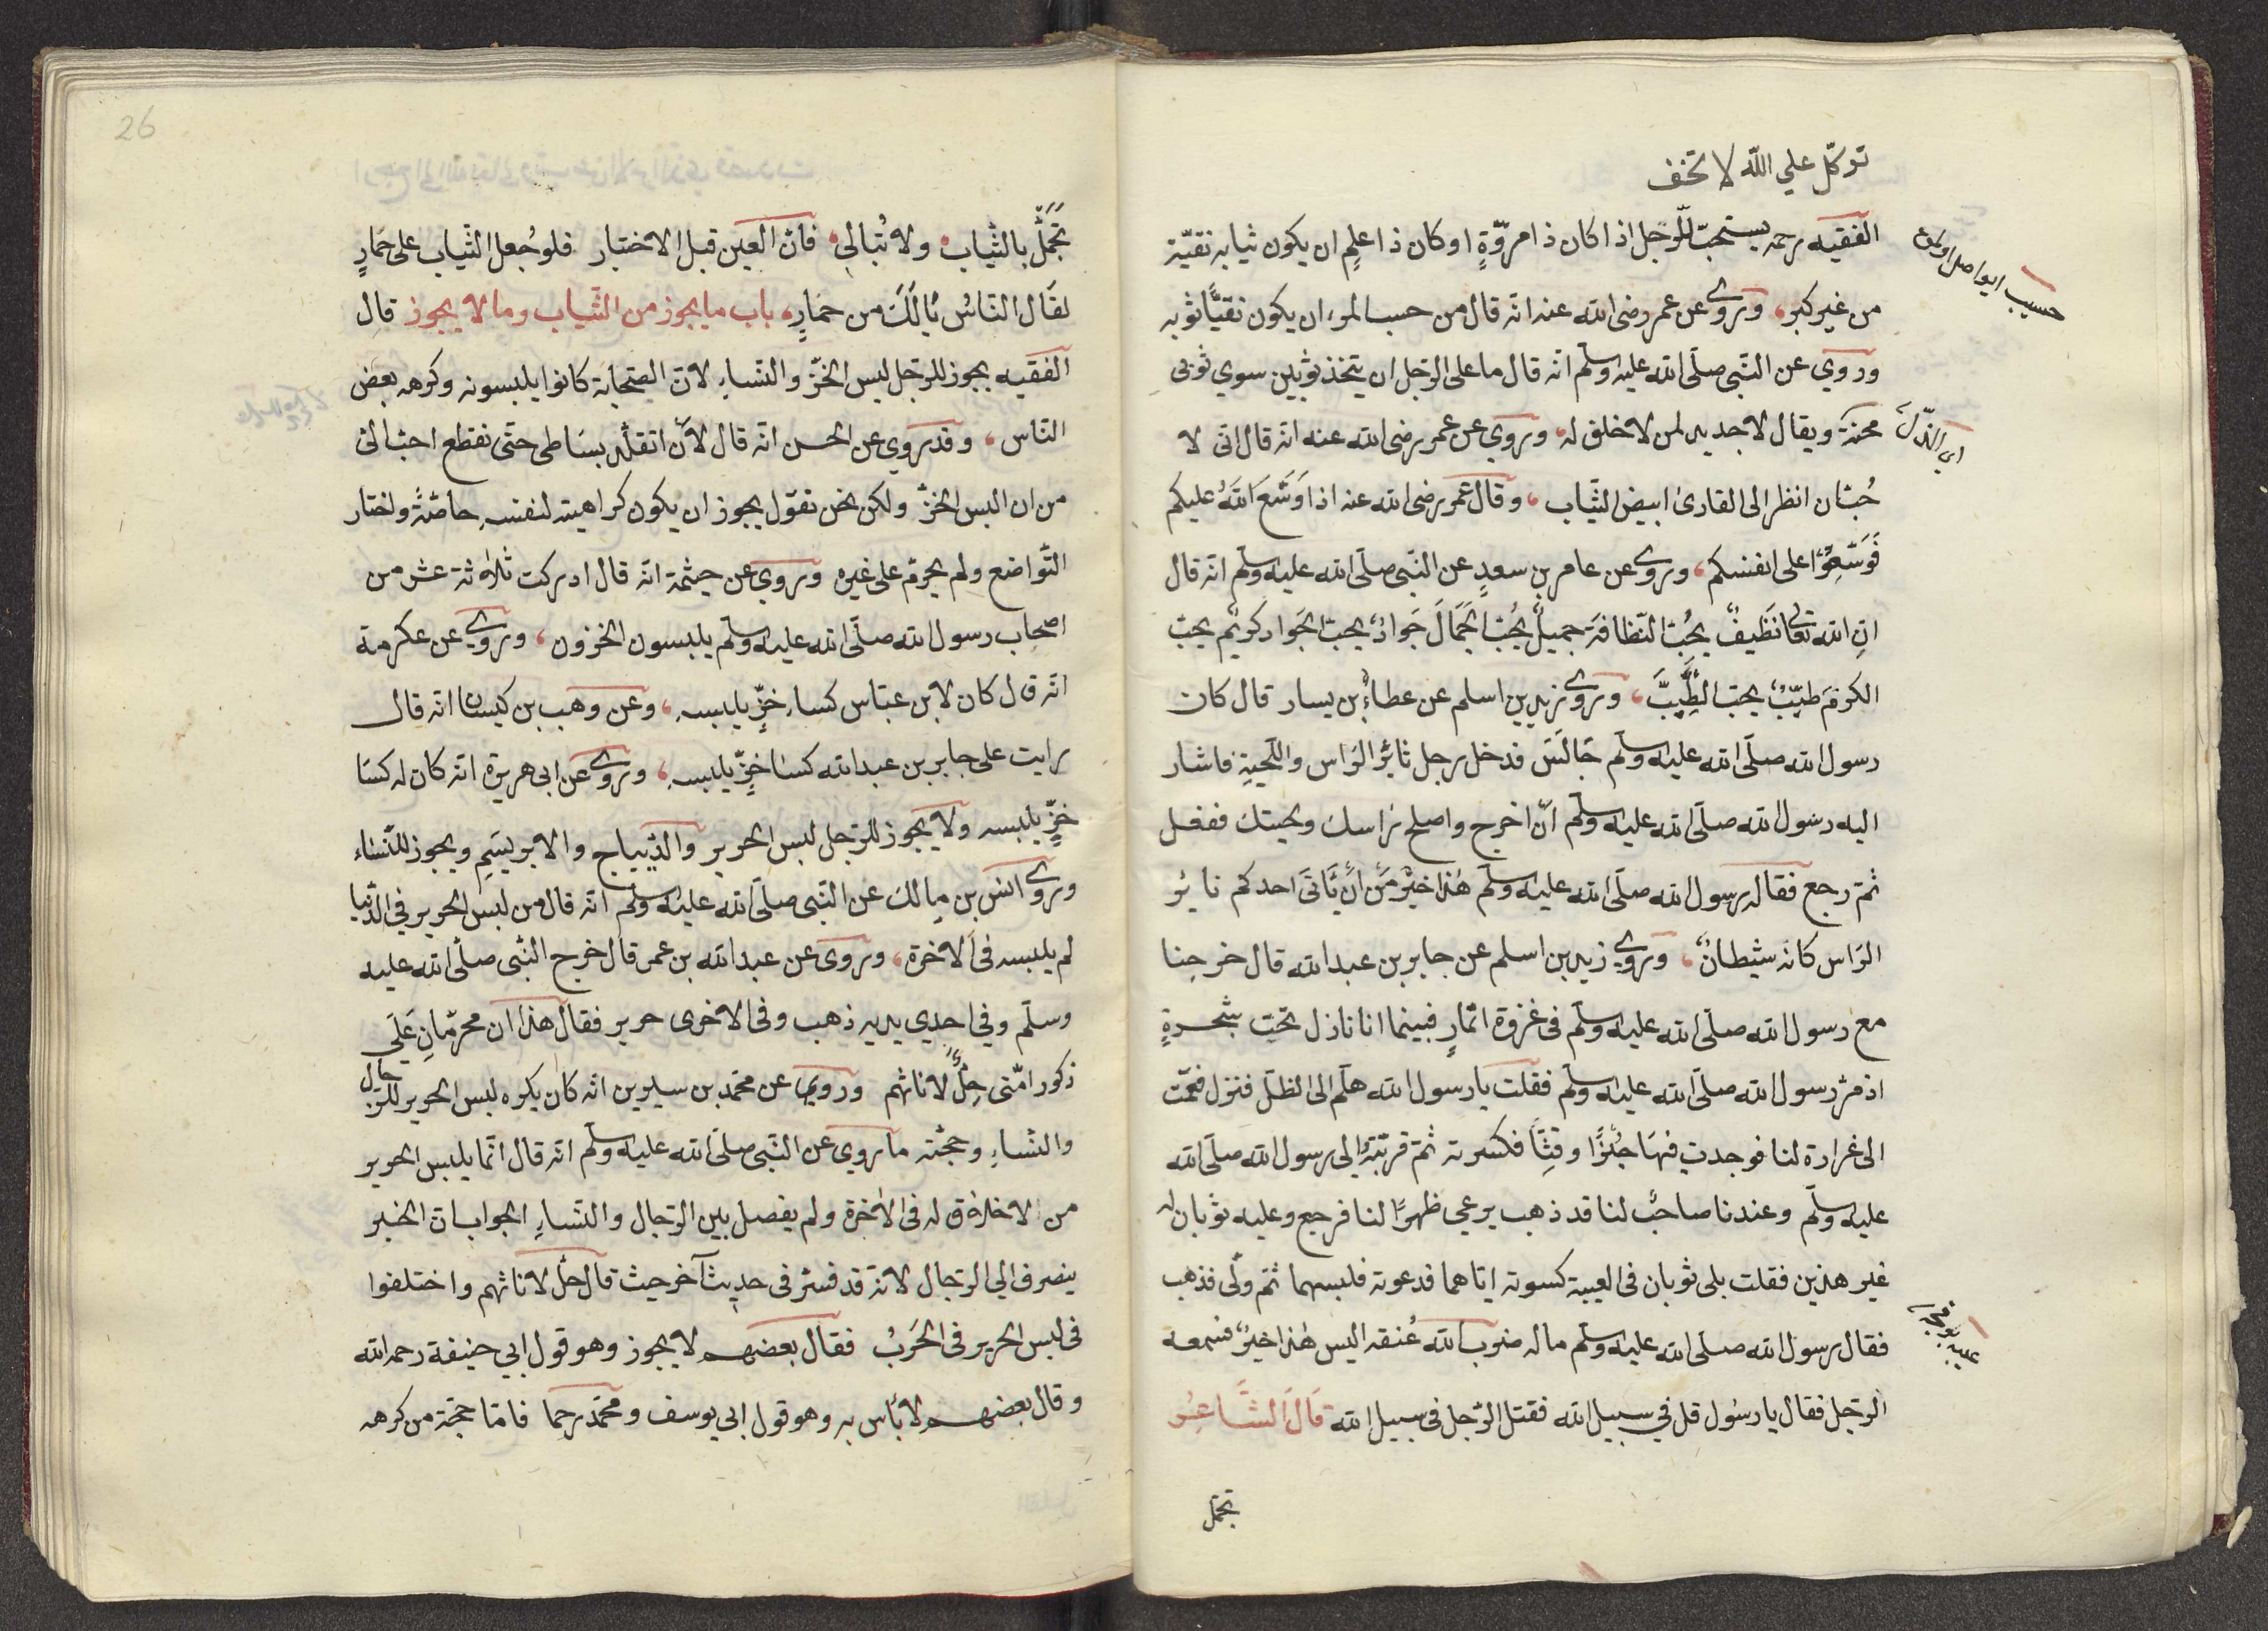 توكّل علي الله لا تخف
الفقيه رحمه يستحبّ للّرجل اذا كان ذا مروّةٍ او كان ذا علمٍ ان يكون ثيابه نقيّة
من غير كبر، وروي عن عمر رضى الله عنه انّه قال من حسب المرء ان يكون نقيًّا ثوبه
وروي عن النّبى صلّى الله عليه وسلّم انّه قال ما على الرّجل ان يتخذ ثوبين سوي ثوبى
محنة ويقال لا جديد لمن لا خلق له، وروي عن عمر رضى الله عنه انّه قال انّى لا
حُبّان انظر الى القارئ ابيض الثّياب، وقال عمر رضى الله عنه اذا وَسَّعَ اللهُ عليكم
فَوَسِّعُوْا على انفسكم، وروي عن عامر بن سعدٍ عن النّبى صلّى الله عليه وسلّم انّه قال
انِ الله تعا نَظيفٌ يحُبّ النّظافة جميلٌ يحُبّ الجَمَالَ جَوادٌ يحبّ الجَواد كريمٌ يحبّ
الكرمَ طيّبٌ يحبّ الطّيِّبَ، وروي زيد بن اسلم عن عطاء بن يسار قال كان
رسول الله صلّى الله عليه وسلّم جَالسَ فدخل رجل ثايرُ الرّاس واللّحيةِ فاشار
اليه رسول الله صلّى الله عليه وسلّم انّ اخرج واصلح راسك ولحيتك ففعل
ثمّ رجع فقال رسول الله صلّى الله عليه وسلّم هٰذا خيرٌ مَن أنْ يَّأتىَ احدكم ثايرُ
الرّاس كانّه شيطانٌ، وروي زيد بن اسلم عن جابر بن عبدالله قال خرجنا
مع رسول الله صلّى الله عليه وسلّم فى غزوة انمّارٍ فبينما انا نازل تحت شجرةٍ
اذ مرّ رسول الله صلّى الله عليه وسلّم فقلت يا رسول الله هلّم الى الظّل فنزل فقمّت
الى غرارة لنا فوجدت فيهَا خُبْزًا وقِثَّا فكسرته ثمّ قرّبتُه الى رسول الله صلّى الله
عليه وسلّم وعندنا صاحبٌ لنا قد ذهب يرعي ظهرًا لنا فرجع وعليه ثوبان له
غير هذين فقلت بلى ثوبان فى العيبة كسوته ايّاهما فدعوته فلبسهما ثمّ ولّى فذهب
فقال رسول الله صلّى الله عليه وسلّم ماله ضرب الله عُنقه اليس هٰذا خيرٌ فسمعه
الرّجل فقال يا رسُول قل في سبيل الله فقتل الرّجل فى سبيل الله قَالَ الشَّاعِرُ
تجمّل
حسيب ايو اصل اولمق
اى الذّلّ
26
تَجَمَّلْ بالثّياب ولا تُبالي فانّ العين قبل الاختبار فلو جُعل الثّياب على حَمارٍ
لقَال النّاسُ يَالَكَ من حمَارٍ، باب ما يجوز من الثّياب وما لا يجوز قال
الفقيه يجوز للرّجل لبس الخزّ والنّساء لانّ الصّحابة كانوا يلبسونه وكرهه بعض
النّاس، وقد روي عن الحسن انّه قال لأَن اتقلّد بسَاطى حتّى نقطع احبّ الىّ
من ان البس الخزّ ولكن نحن نقول يجوز ان يكون كراهيته لنفسه خاصّةً واختار
التّواضع ولم يحرّم على غيره وروي عن خيثمة انّه قال ادركت ثلاٰثة عشر من
اصحاب رسول الله صلّى الله عليه وسلّم يلبسون الخزون، وروي عن عكرمة
انّه قال كان لابن عبّاس كساء خزٍّ يلبسه، وعن وهب بن كيسان انّه قال
رايت على جابر بن عبدالله كسا خزٍّ يلبسه، وروي عن ابى هريرة انّه كان له كسَا
خزٍّ يلبسه ولا يجوز للرّجل لبس الحرير والدّيباج والابريسَمِ ويجوز للنّسَاء
وروي انس بن مالك عن النّبى صلّى الله عليه وسلّم انّه قال من لبس الحرير في الدّنيا
لم يلبسه فى الآخرة، وروى عن عبدالله بن عمر قال خرج النّبى صلّى الله عليه
وسلّم وفي احدي يديه ذهب وفى الاخرى حرير فقال هذان محرّمانِ عَلَى
ذكور امّتى حِلٌّ لاناثهم وروي عن محمّد بن سيرين انّه كان يكره لبس الحرير للرّجال
والنّساءِ وحجّته ما روي عن النّبى صلّى الله عليه وسلّم انّه قال انّما يلبس الحرير
من لا خلاٰق له فى الآخرة ولم يفصل بين الرّجال والنّساءِ الجواب انّ الخبر
ينصرف الى الرّجال لانّه قد فسّر فى حديث آخر حيث قال حلّ لاناثهم واختلفوا
فى لبس الحرير فى الحَربُ فقال بعضهم لا يجوز وهو قول ابي حنيفة رحمه الله
وقال بعضهم لا بأس به وهو قول ابى يوسف ومحمّد رحمَا فامّا حجّة من كرهه